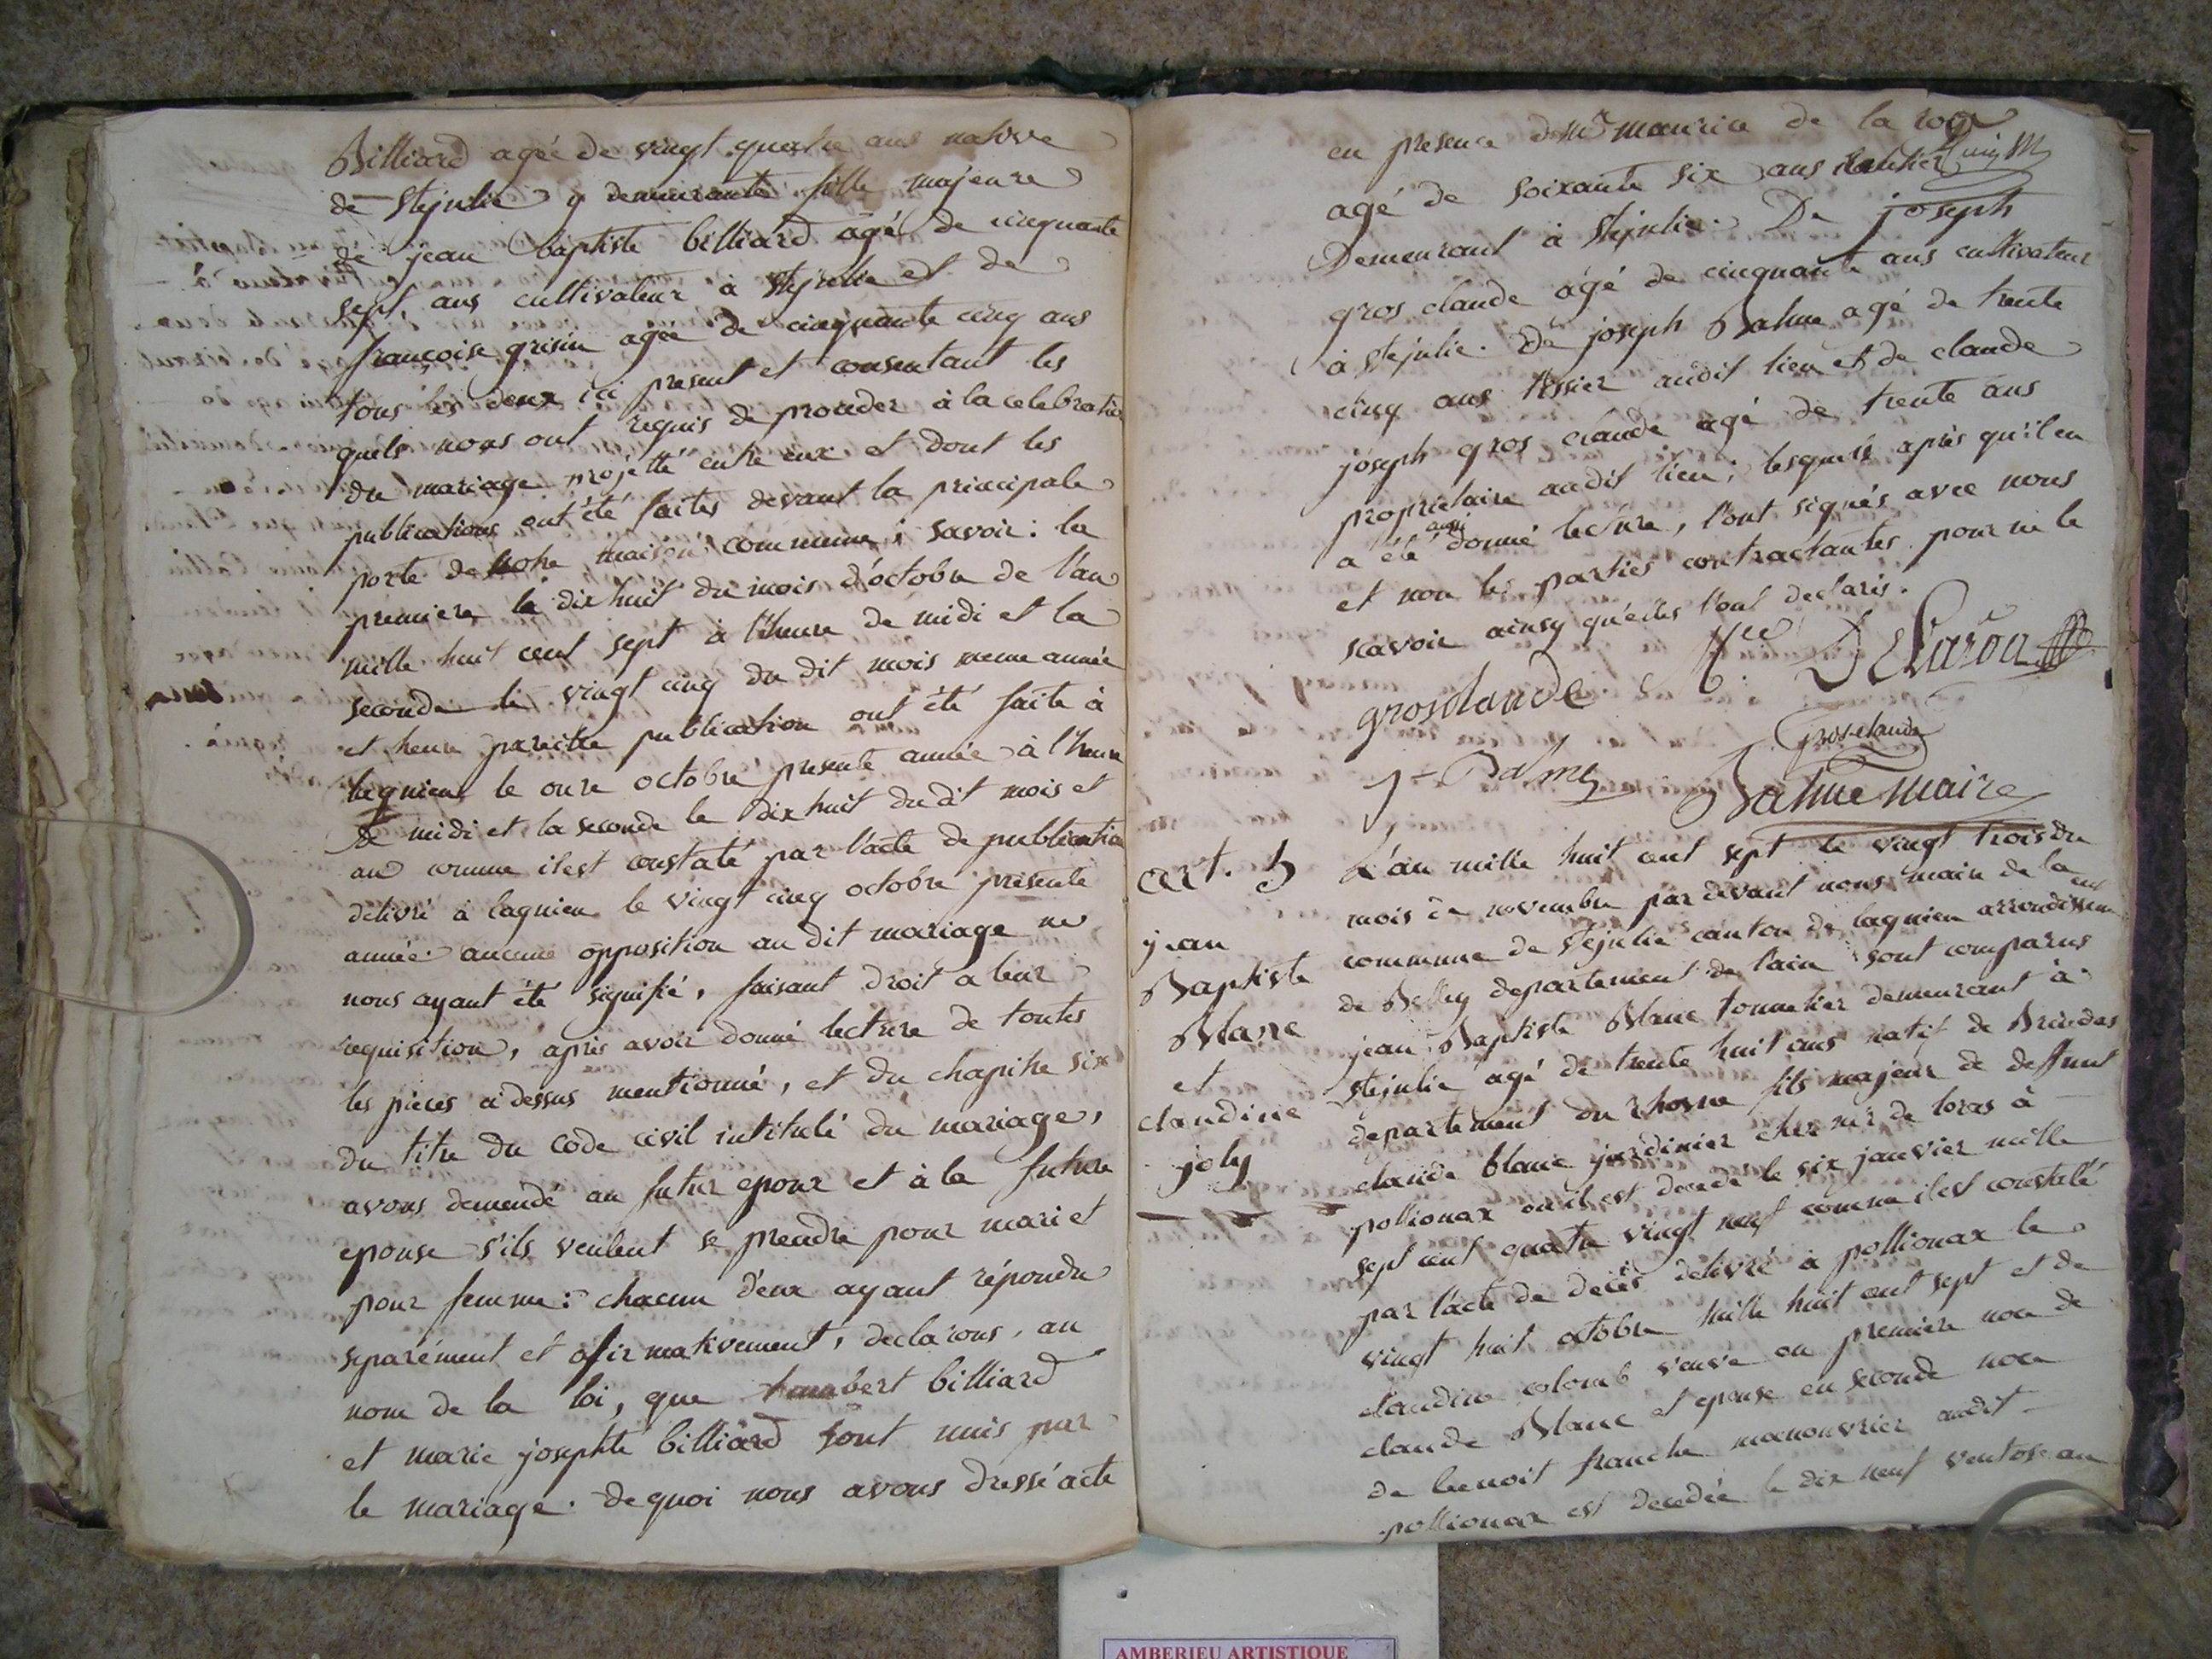 Billiard agée de vingt quatre ans native
de Stejulie y demeurante fille majeure
de jean baptiste billiard agé de cinquante
sept ans cultivateur à Stejulie et de
françoise grisin agée de cinquante cinq ans
tous les deux ici present et consentant les
quels nous ont requis de proceder à la celebration
du mariage projetté entre eux et dont les
publications ont été faites devant la principale
porte de notre maison commune; savoir: la
premiere le dix huit du mois d'octobre de l'an
mille huit cent sept à l'heure de midi et la
seconde le vingt cinq du dit mois meme année
et heure pareille publication ont été faite à
lagnieu le onze octobre presente année à l'heure
de midi et la seconde le dix huit dudit mois et
an comme il est constaté par l'acte de publication
delivré à lagnieu le vingt cinq octobre presente
année. aucune opposition au dit mariage ne
nous ayant été signifié, faisant droit a leur
requisition, apres avoir donné lecture de toutes
les pieces ci dessus mentionné, et du chapitre six
du titre du code civil intitulé du mariage,
avons demendé au futur epoux et à la future
epouse s'ils veulent se prendre pour mari et
pour femme: chacun d'eux ayant répondu
separément et afirmativement, declarons, au
nom de la loi, que humbert billiard
et marie josephte billiard sont unis par
le mariage. de quoi nous avons dressé acte
en presence de Mr maurice de la
agé de soixante six ans Rentier
Demeurant à Stejulie. De joseph
gros claude agé de cinquante ans cultivateur
à Stejulie. De joseph Balme agé de trente
cinq ans tissier audit lieu et de claude
joseph gros claude agé de trente ans
proprietaire audit lieu; lesquels après qu'il en
a été aussi donné lecture, l'ont signés avec nous
et non les parties contractantes pour ne le
scavoir ainsy qu'elles l'ont declaris.
grosclaude
gros-claude
J. Balme Balme maire
art. 5 L'an mille huit cent sept le vingt trois du
mois de novembre par devant nous maire de la
commune de Stejulie canton de lagnieu arrondissement
de Belley departement de l'ain sont comparus
jean Baptiste Blanc tonnelier demeurant à
Stejulie agé de trente huit ans natif de Brindas
departement du rhosne fils majeur de deffunt
claude blanc jardinier chez mr de loras à
pollionax ou il est decedé le six janvier mille
sept cent quatre vingt neuf comme il est constaté
par l'acte de décès delivré à pollionax le
vingt huit octobre mille huit cent sept et de
claudine colomb veuve en premiere noce de
claude Blanc et epouse en seconde noce
de benoit franche manouvrier audit
pollionax est decedée le dix neuf ventose an
jean
Baptiste
Blanc
et
claudine
joly
AMBERIEU ARTISTIQUE